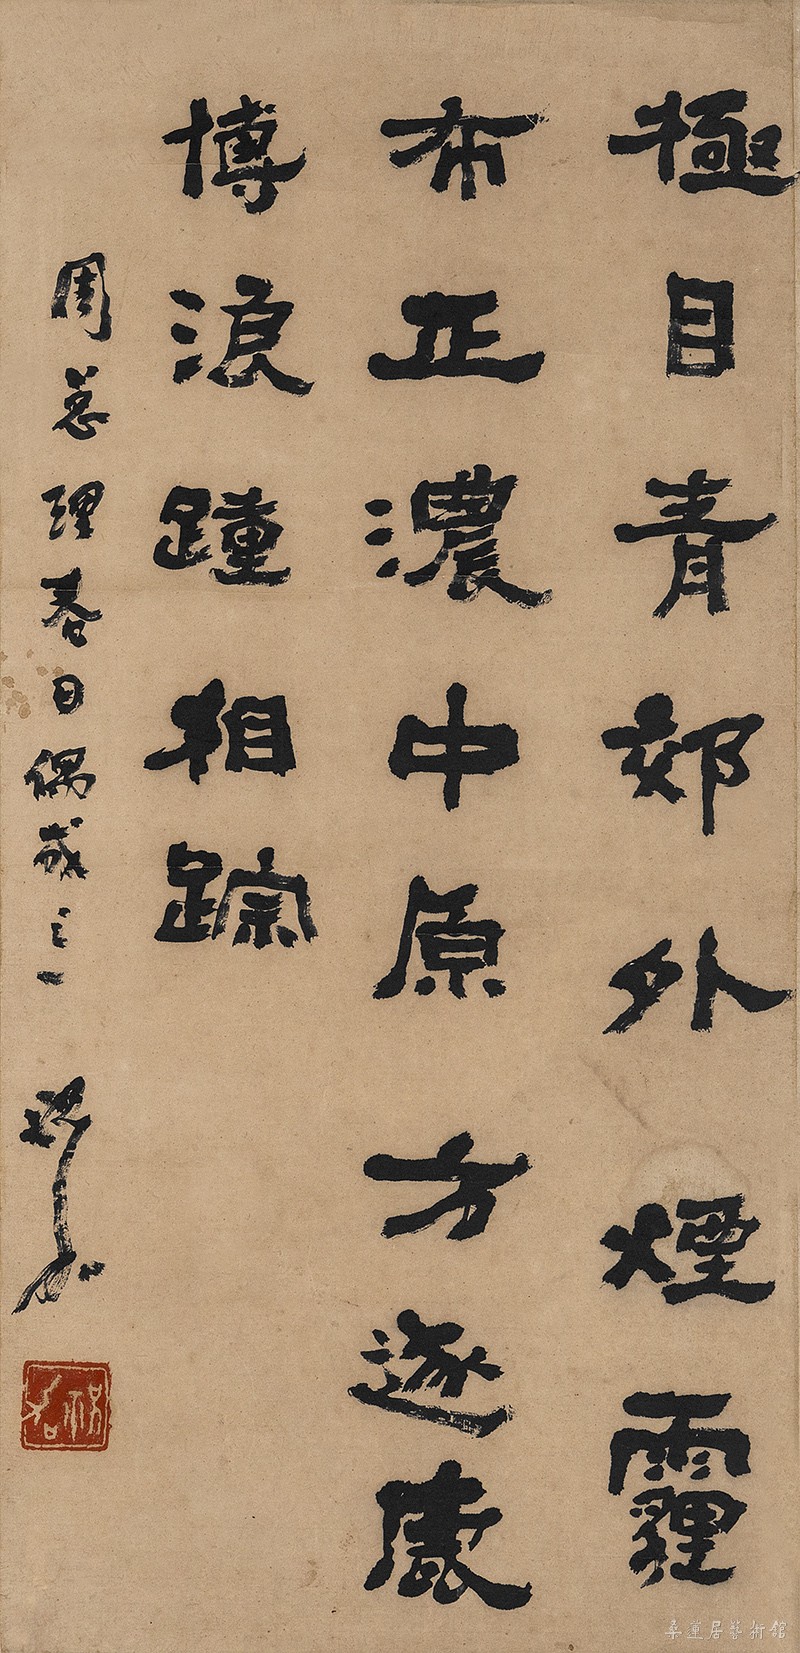 極目青郊外煙霾
布正濃中原方逐鹿
博浪踵相踪
周总理春日偶成之一
桑蓮居藝術館